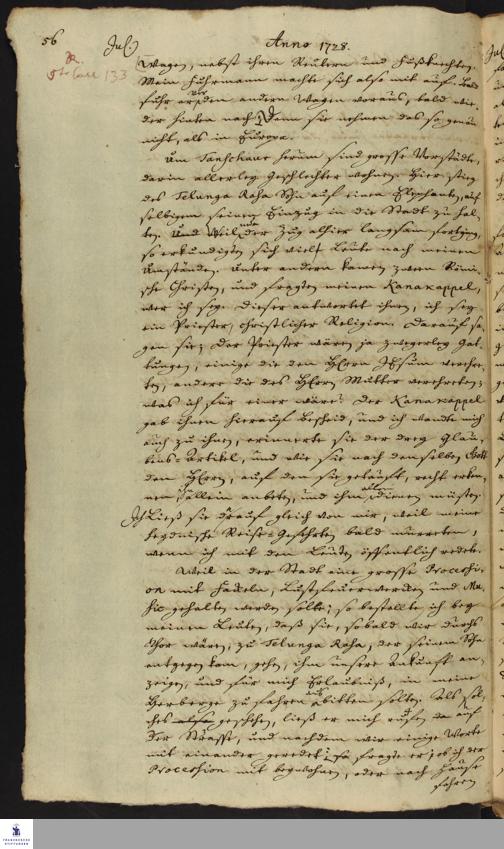 56
Jul.
Anno 1728.
Wagen, nebst ihren Reutern und Fußknechten.
Mein Fuhrmann machte sich also mit auf. Bald
fuhr er vor den andern Wagen voraus, bald wie-
der hinten nach, denn sie nehmen das so genau
nicht, als in Europa.
Um Tanschaur herum sind grosse Vorstädte,
darin allerley Geschlechter wohnen. Hier stieg
des Telunga Raha Sohn auf einen Elephanten, auf
selbigem seinen Einzug in die Stadt zu hal-
ten. Und weil der Zug alhier langsam fortging,
so erkundigten sich viele Leute nach meinen
Umständen. Unter andern kamen zween Römi-
sche Christen, und fragten meinen Kanakappel,
wer ich sey. Dieser antwortet ihnen, ich sey
ein Priester christlicher Religion. Darauf sa-
gen sie: Der Priester wären ja zweyerley Gat-
tungen, einige die den HErrn JEsum verehr-
ten, andere die des HErrn Mutter verehreten;
was ich für einer wäre? Der Kanakappel
gab ihnen hierauf Bescheid, und ich wandte mich
auch zu ihnen, erinnerte sie der drey Glau-
bens-Artikel, und wie sie nach denselben Gott
den HErrn, auf den sie getauft, recht erken-
nen, allein anbeten, und ihm allein dienen müsten.
Ich ließ sie drauf gleich von mir, weil meine
heydnische Reise-Gefehrten bald murreten,
wenn ich mit den Leuten öffentlich redete.
Weil in der Stadt eine grosse Procession
mit Fackeln, Lustfeuerwercken und Mu-
sic gehalten werden solte; so bestellte ich bey
meinen Leuten, daß sie, sobald wir durchs
Thor wären, zu Telunga Raha, der seinem Sohn
entgegen kam, gehen, ihm unsere Ankunft an-
zeigen, und für mich Erlaubniß, in meine
Herberge zu fahren ausbitten solten. Als sol-
ches geschehen, ließ er mich rufen auf
der Strasse, und nachdem wir einige Worte
mit einander geredet, so fragte er: ob ich der
Procession mit beywohnen, oder nach Hause
fahren
FRANCKESCHE STIFTUNGEN